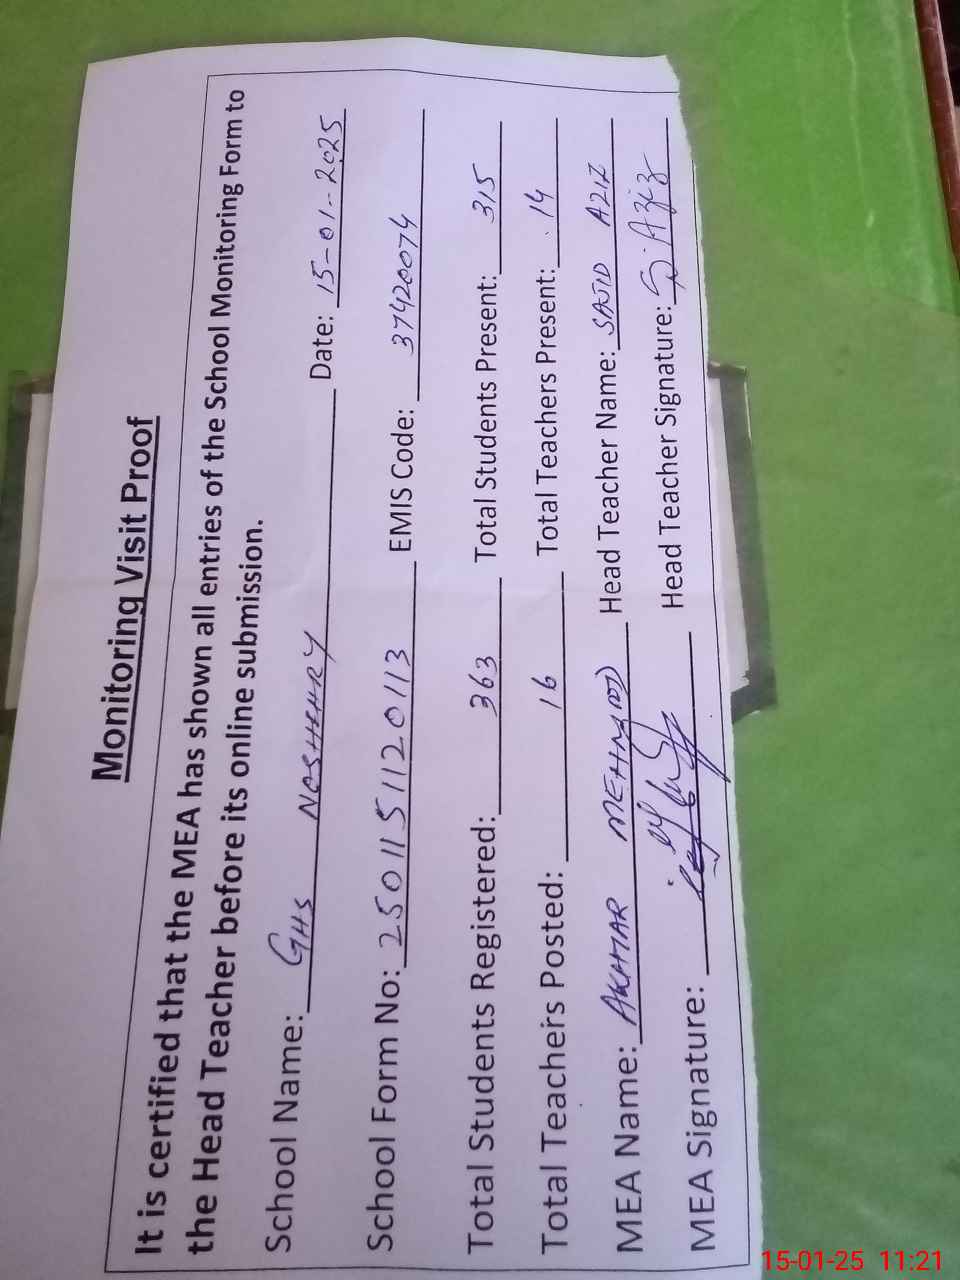 Monitoring Visit Proof
It is certified that the MEA has shown all entries of the School Monitoring Form to
the Head Teacher before its online submission.
School Name: GHS NOSHEHRY Date: 15-01-2025
School Form No: 2501151120113 EMIS Code: 37420074
Total Students Registered: 363 Total Students Present: 315
Total Teachers Posted: 16 Total Teachers Present: 14
MEA Name: MEHMOOD Head Teacher Name: SAJID AZIZ
MEA Signature: Head Teacher Signature: S. Aziz
15-01-25 11:21